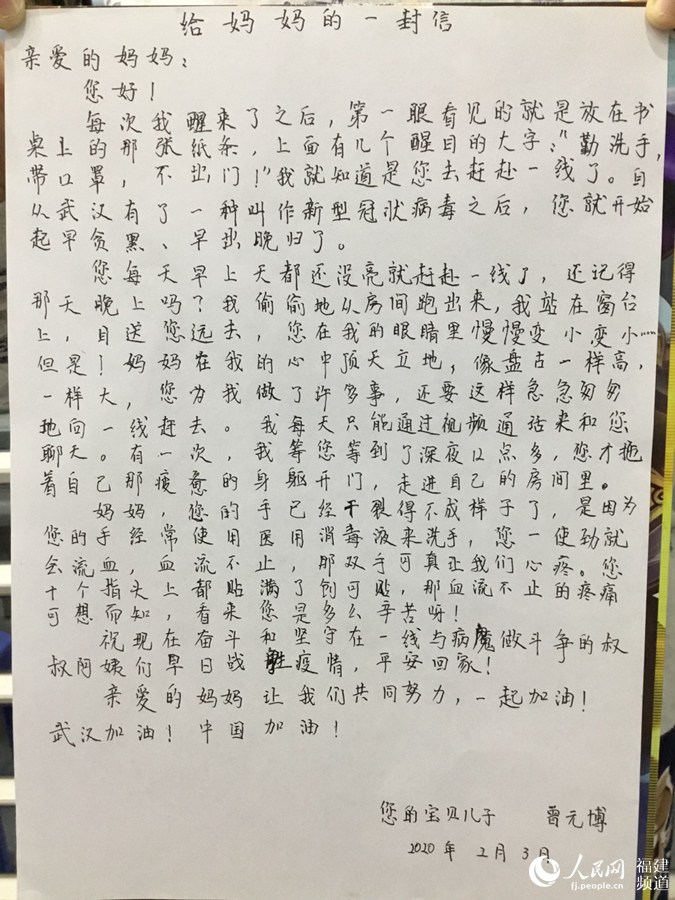 给妈妈的一封信
亲爱的妈妈:
您好!
每次我醒来了之后,第一眼看见的就是放在书
桌上的那张纸条,上面有几个醒目的大字:“勤洗手,
带口罩,不出门!”我就知道是您去赶赴一线了。自
从武汉有了一种叫作新型冠状病毒之后,您就开始
起早贪黑、早出晚归了。
您每天早上天都还没亮就赶赴一线了,还记得
那天晚上吗?我偷偷地从房间跑出来,我站在窗台
上,目送您远去,您在我的眼睛里慢慢变小变小……
但是!妈妈在我的心中顶天立地,像盘古一样高,
一样大,您为我做了许多事,还要这样急急匆匆
地向一线赶去。我每天只能通过视频通话来和您
聊天。有一次,我等您等到了深夜12点多,您才拖
着自己那疲惫的身躯开门,走进自己的房间里。
妈妈,您的手已经干裂得不成样子了,是因为
您的手经常使用医用消毒液来洗手,您一使劲就
会流血,血流不止,那双手可真让我们心疼。您
十个指头上都贴满了创可贴,那血流不止的疼痛
可想而知,看来您是多么辛苦呀!
祝现在奋斗和坚守在一线与病魔做斗争的叔
叔阿姨们早日战胜疫情,平安回家!
亲爱的妈妈让我们共同努力,一起加油!
武汉加油!中国加油!
您的宝贝儿子 曾元博
2020年2月3日
人民网 福建
fj.people.cn 频道